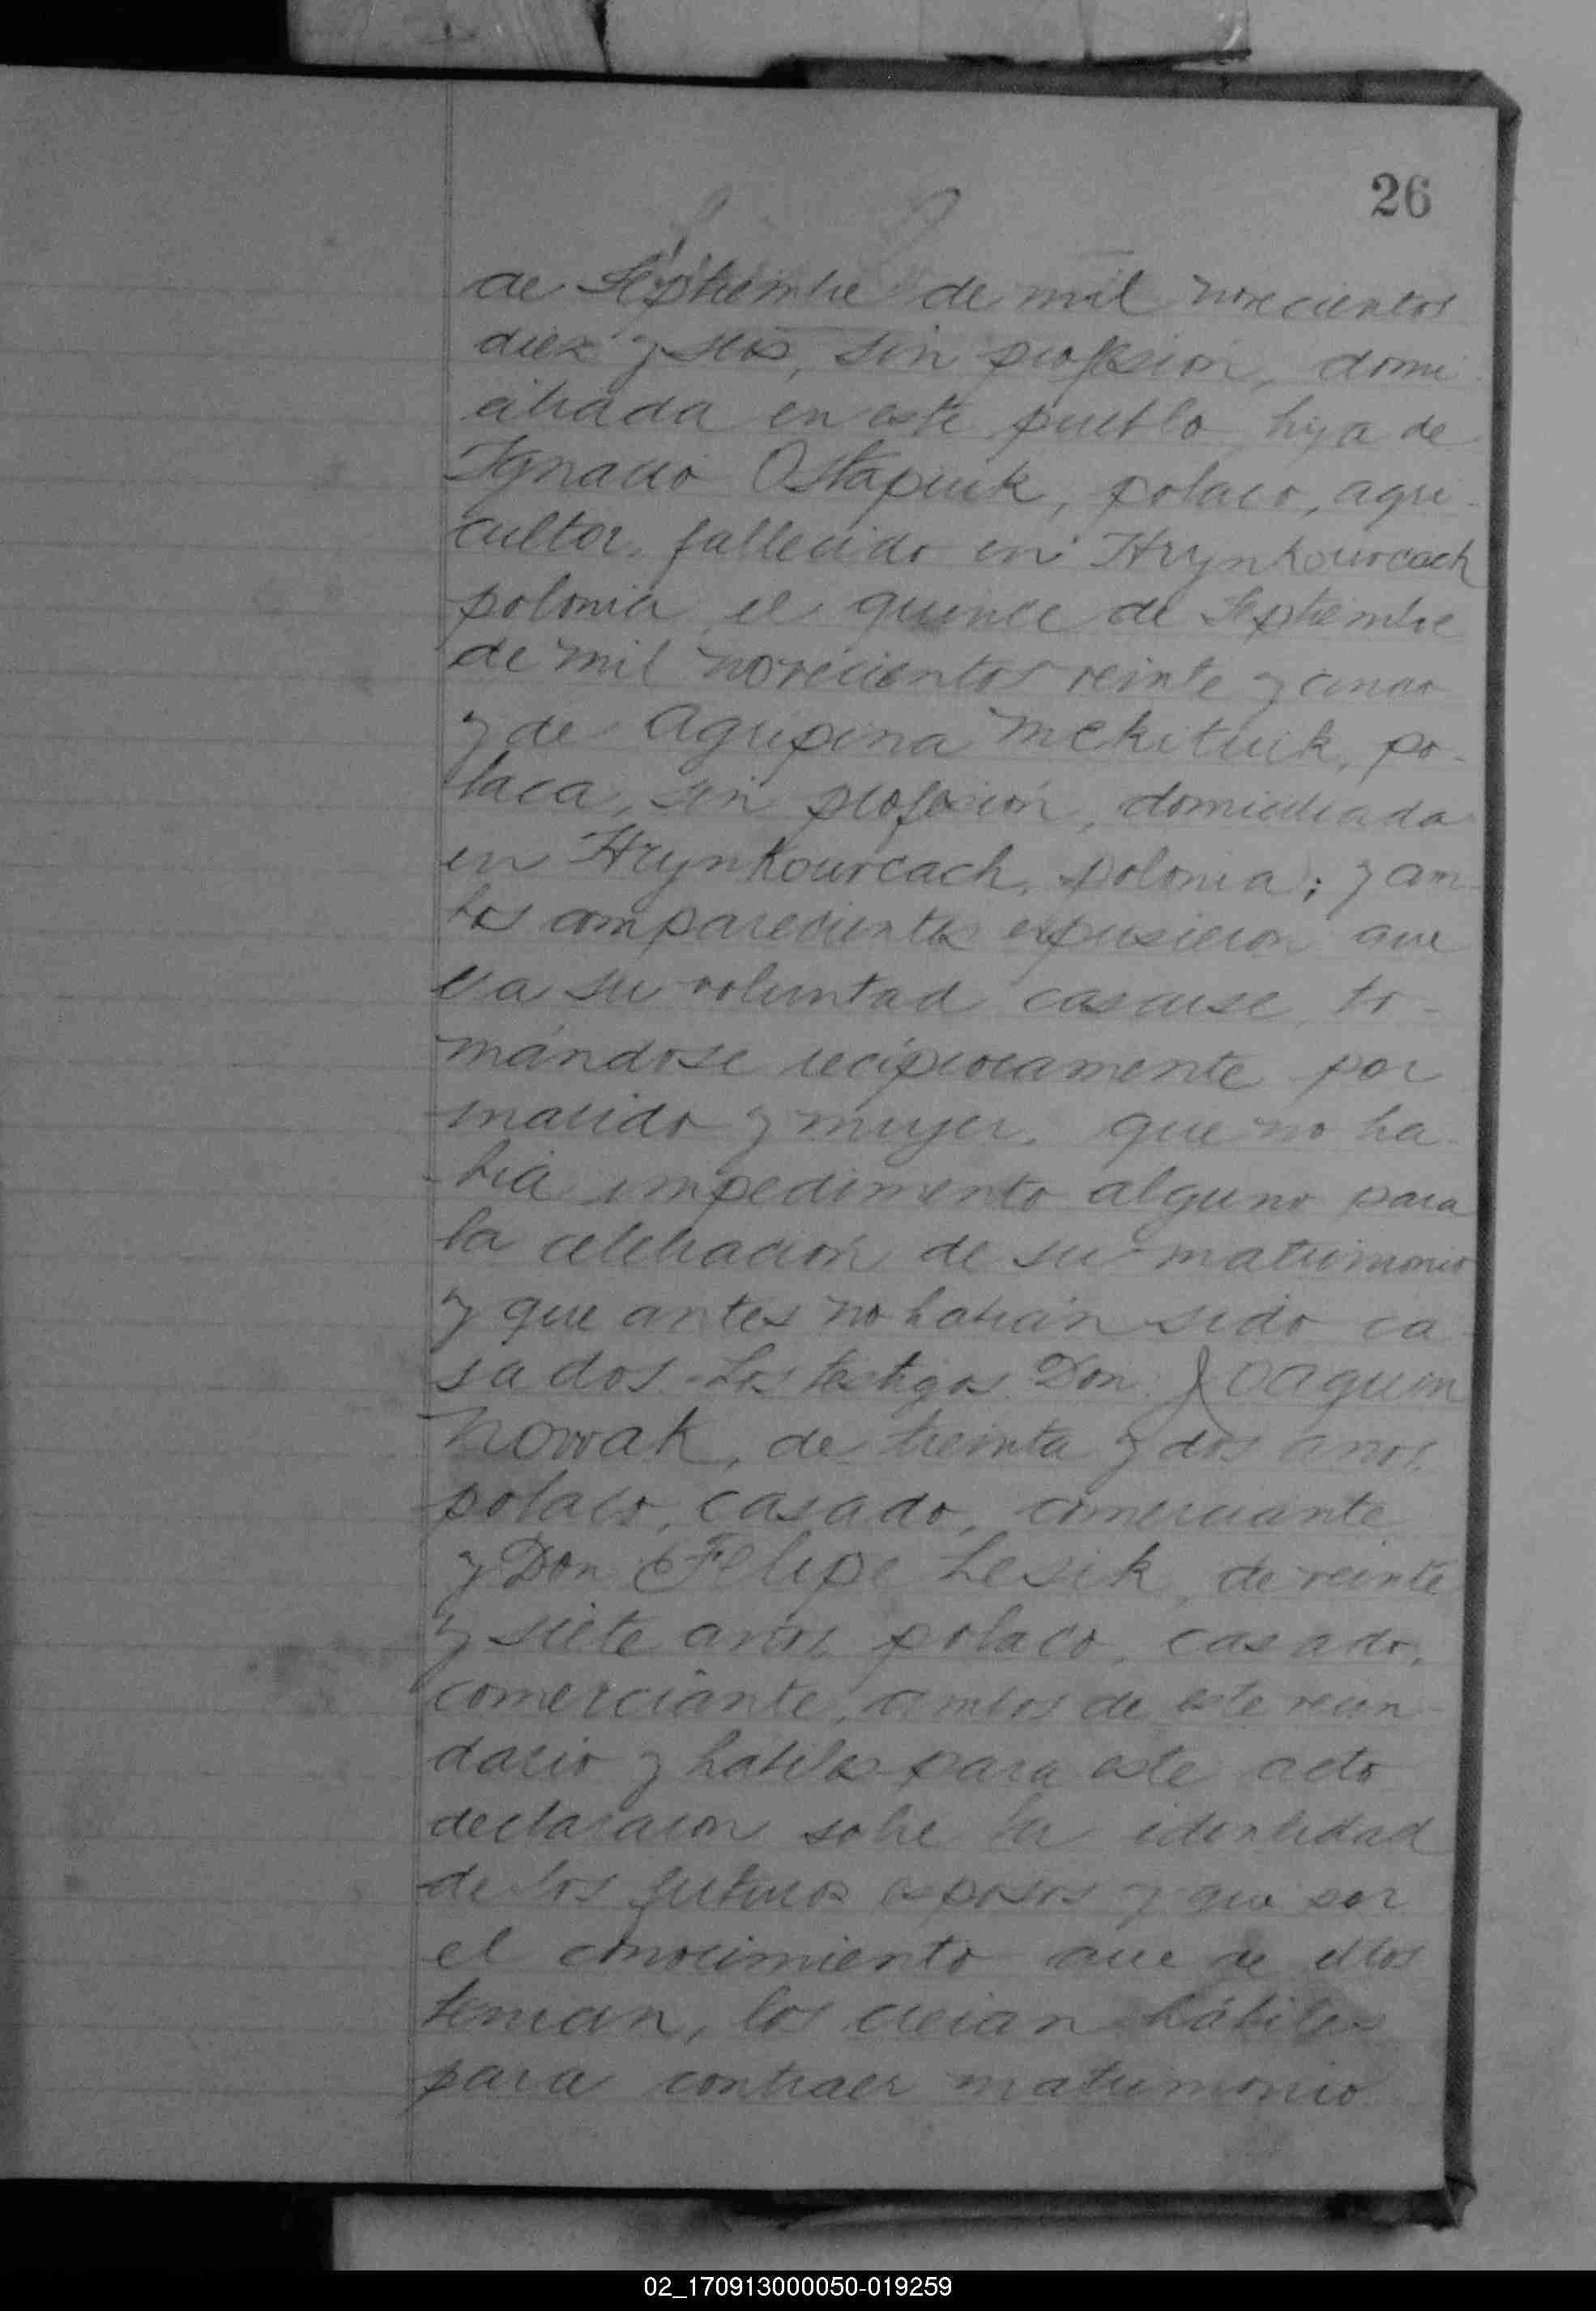 26
de Septiembre de mil novecientos
diez y seis, sin profesión, domi
ciliada en este pueblo, hija de
Ignacio Ostapiuk, polaco, agri-
cultor, fallecido en Hrynkourcach
polonia, el quince de Septiembre
de mil novecientos veinte y cinco
y de Agripina Mekituik, po-
laca, sin profesión, domiciliada
en Hrynkourcach, polonia; y am-
bos comparecientes expusieron que
era su voluntad casarse, to-
mándose recíprocamente por
marido y mujer, que no ha-
bía impedimento alguno para
la celebración de su matrimonio
y que antes no habían sido ca-
sados. Los testigos Don Joaquin
Nowak, de treinta y dos años,
polaco, casado, comerciante
y Don Felipe Lesik, de veinte
y siete años, polaco, casado,
comerciante, ambos de este vecin-
dario y hábiles para este acto
declararon sobre la identidad
de los futuros esposos y que por
el conocimiento que de ellos
tenían, los creían hábiles
para contraer matrimonio
02_170913000050-019259